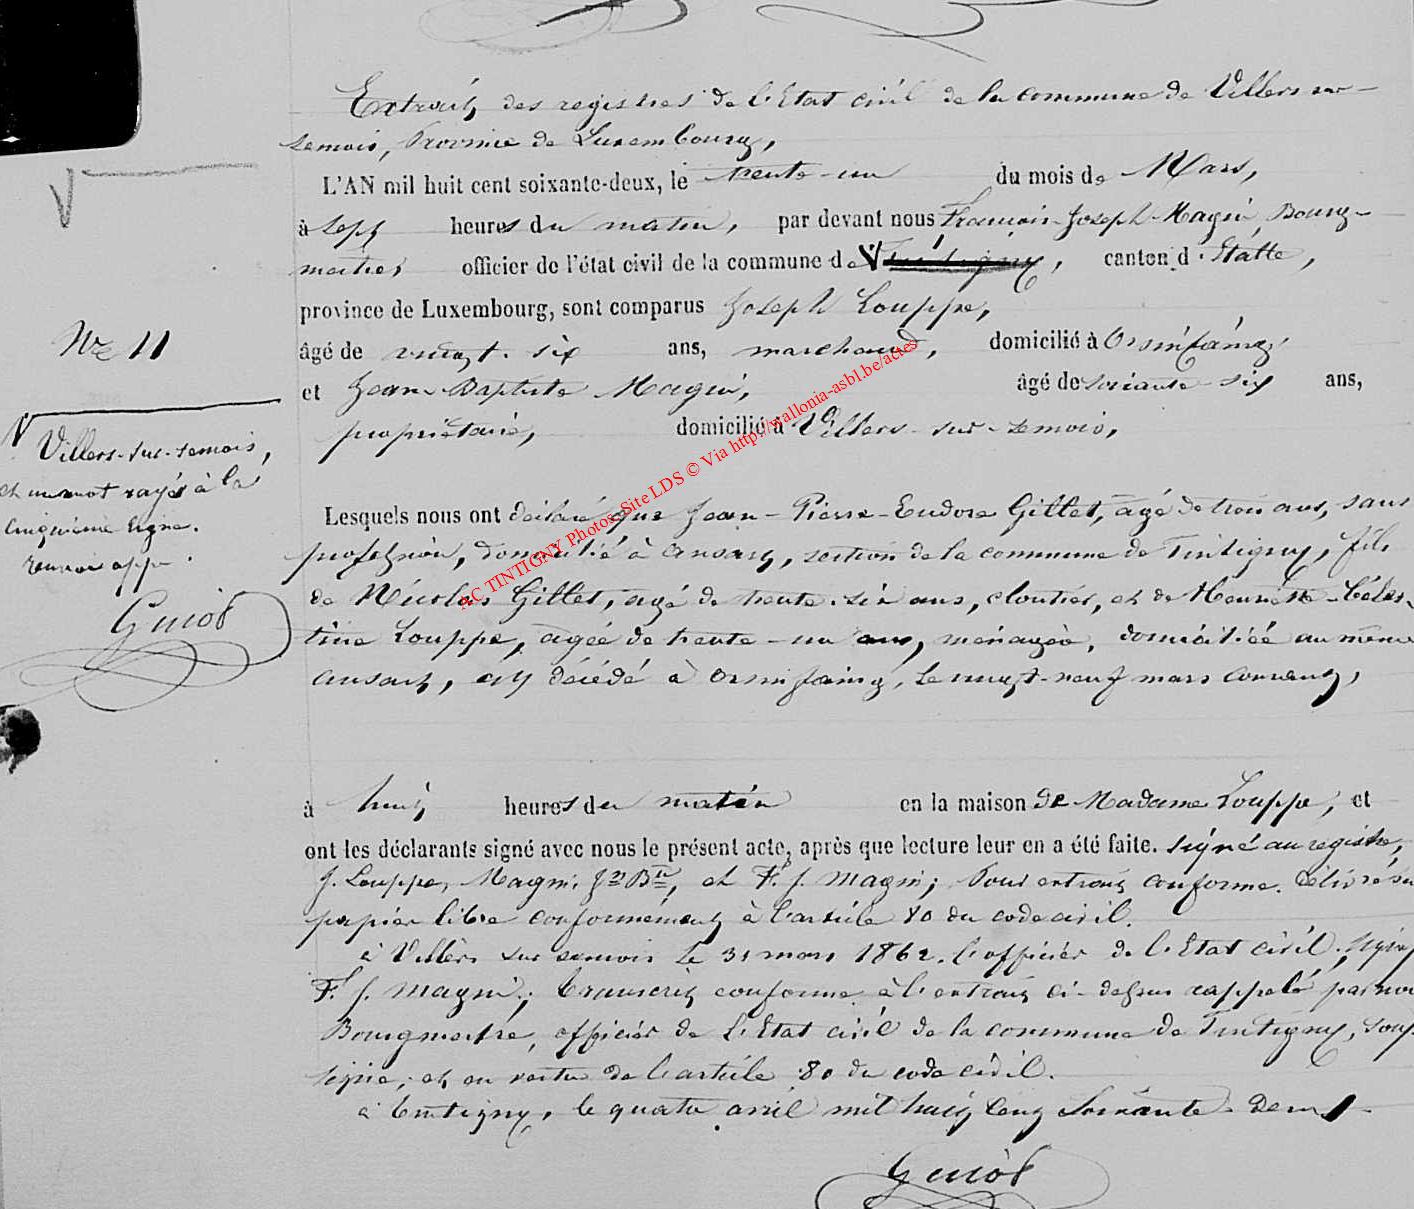 Extrait des registres de l'Etat civil de la commune de Villers sur-
semois, Province de Luxembourg,
L'AN mil huit cent soixante-deux, le trente-un du mois de Mars,
à sept heures du matin, par devant nous François-Joseph Magni, Bourg-
mestre, officier de l'état civil de la commune de V Tintigny, canton d'Etalle,
province de Luxembourg, sont comparus Joseph Louppe,
âgé de vingt-six ans, marchand, domicilié à Orsinfaing,
et Jean Baptiste Magni, âgé de soixante-six ans,
propriétaire, domicilié à Villers-sur-semois,
Lesquels nous ont déclaré que Jean-Pierre-Eudore Gillet, âgé de trois ans, sans
profession, domicilié à Ansart, section de la commune de Tintigny, fils
de Nicolas Gillet, âgé de trente-six ans, cloutier, et de Henriette-Céles-
tine Louppe, âgée de trente-un ans, ménagère, domiciliée au même
Ansart, est décédé à Orsinfaing, le vingt-neuf mars courant,
à huit heures du matin en la maison de Madame Louppe, et
ont les déclarants signé avec nous le présent acte, après que lecture leur en a été faite. signé au registre,
J. Louppe, Magni Jn Bte, et F. J. Magni; Pour extrait conforme. Délivré sur
papier libre conformément à l'article 80 du code civil.
à Villers sur semois le 31 mars 1862. l'officier de l'Etat civil, signé
F. J. Magni; Transcrit conforme à l'extrait ci-dessus rappelé par nous
Bourgmestre, officier de l'Etat civil de la commune de Tintigny, sous-
signé, et en vertu de l'article 80 du code civil.
à Tintigny, le quatre avril mil huit cent soixante-deux.
Guiot
No 11
V Villers-sur-semois,
et un mot rayé à la
cinquième ligne.
renvoi app.
Guiot
AC TINTIGNY Photos Site LDS © Via http://wallonia-asbl.be/actes